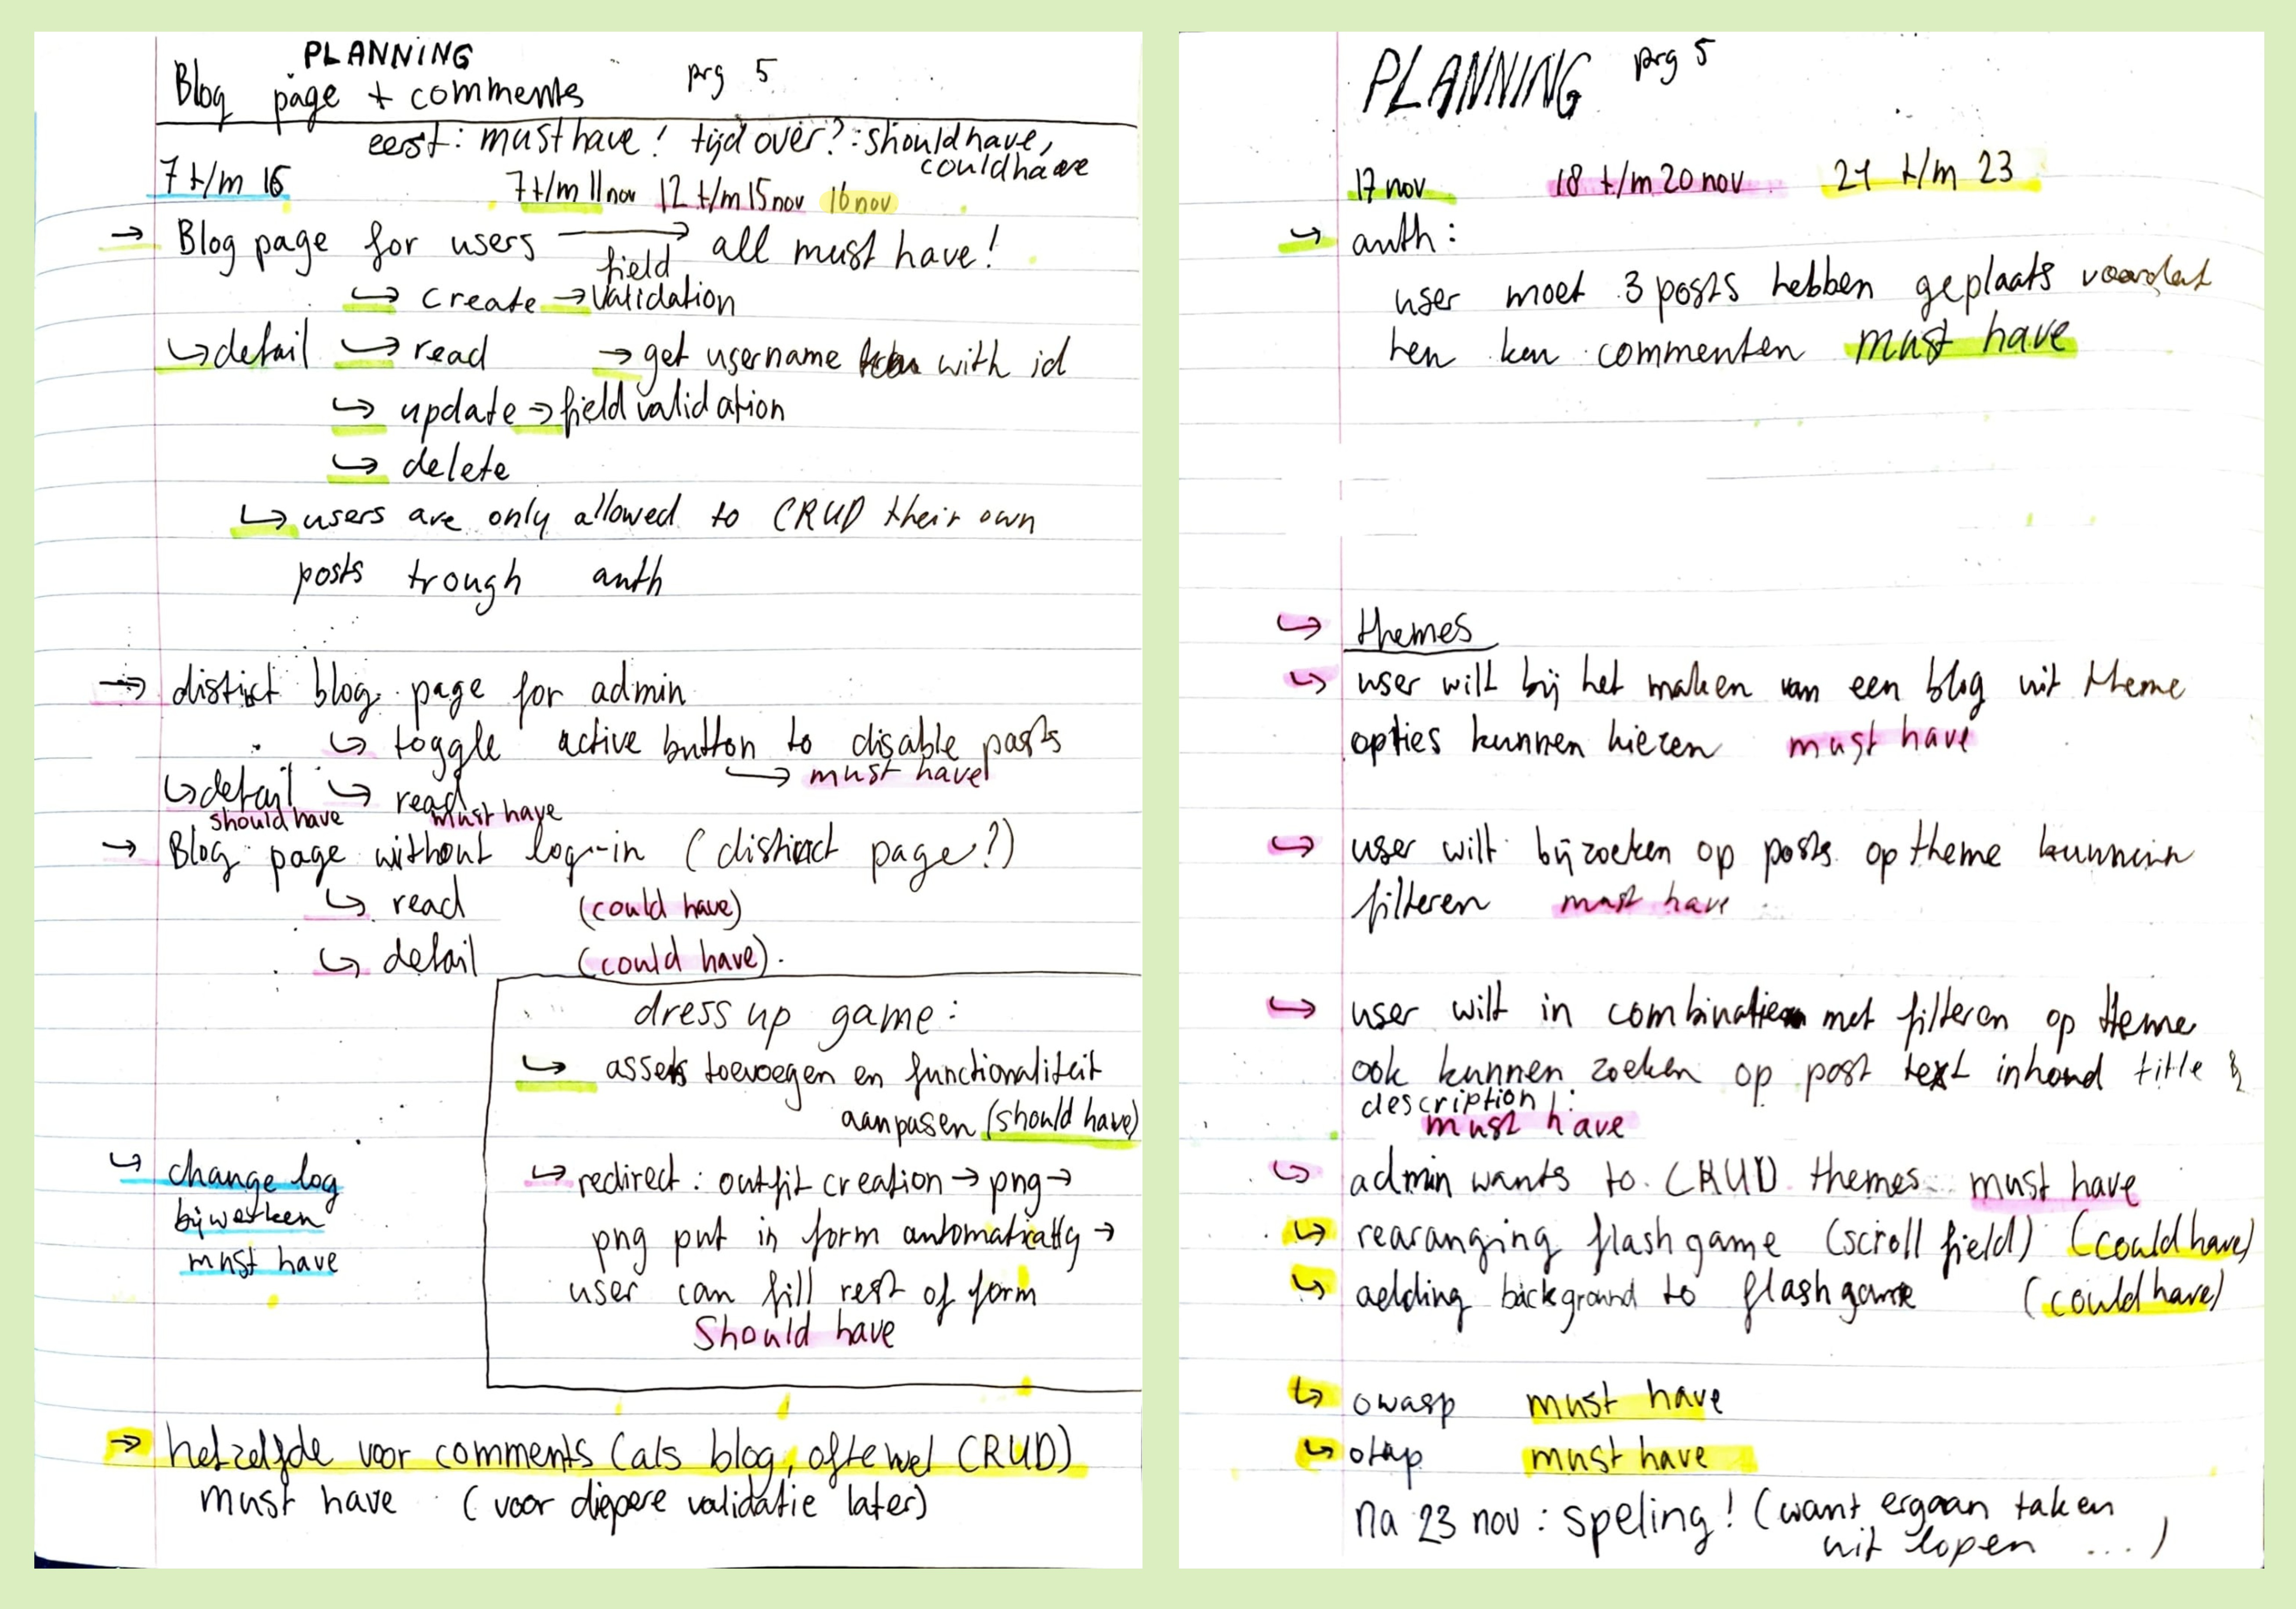 PLANNING
Blog page + comments prg 5
eerst: must have! tijd over?: should have,
could have
7 t/m 16 7 t/m 11 nov 12 t/m 15 nov 16 nov
→ Blog page for users → all must have!
↳ create → field validation
↳ detail ↳ read → get username with id
↳ update → field validation
↳ delete
↳ users are only allowed to CRUD their own
posts trough auth
→ distict blog page for admin
↳ toggle active button to disable posts
↳ must have
↳ detail ↳ read
should have must have
→ Blog page without log-in (distinct page?)
↳ read (could have)
↳ detail (could have).
dress up game:
↳ assets toevoegen en functionaliteit
aanpasen (should have)
↳ redirect: outfit creation → png →
png put in form automatically →
user can fill rest of form
Should have
↳ change log
bijwerken
must have
→ hetzelfde voor comments (als blog, oftewel CRUD)
must have (voor diepere validatie later)
PLANNING prg 5
17 nov 18 t/m 20 nov 21 t/m 23
↳ auth:
user moet 3 posts hebben geplaats voordat
hen kan commenten must have
↳ themes
↳ user wilt bij het maken van een blog uit theme
opties kunnen kiezen must have
↳ user wilt bij zoeken op posts op theme kunnen
filteren must have
↳ user wilt in combinatie met filteren op theme
ook kunnen zoeken op post text inhoud title &
description:
must have
↳ admin wants to CRUD themes must have
↳ rearanging flash game (scroll field) (could have)
↳ adding background to flash game (could have)
↳ owasp must have
↳ otap must have
na 23 nov: speling! (want er gaan taken
uit lopen ...)